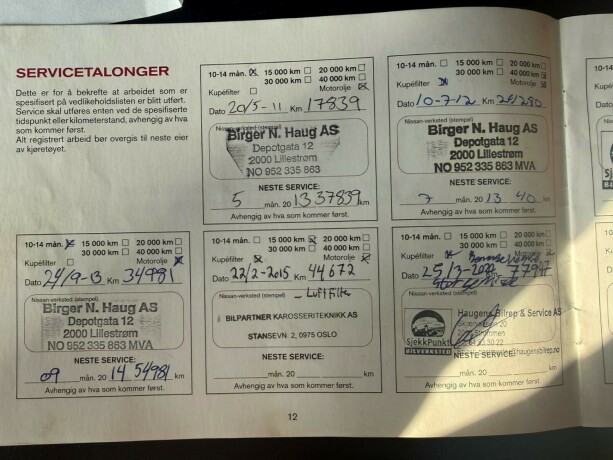 SERVICETALONGER
Dette er for å bekrefte at arbeidet som er
spesifisert på vedlikeholdslisten er blitt utført.
Service skal utføres enten ved de spesifiserte
tidspunkt eller kilometerstand, avhengig av hva
som kommer først.
Alt registrert arbeid bør overgis til neste eier
av kjøretøyet.
10-14 mån. 15 000 km 20 000 km
30 000 km 40 000 km
Kupéfilter Motorolje
Dato 20/5-11 Km 17839
Nissan-verksted (stempel)
Birger N. Haug AS
Depotgata 12
2000 Lillestrøm
NO 952 335 863
NESTE SERVICE:
5 mån. 20 13 37839 km
Avhengig av hva som kommer først.
10-14 mån. 15 000 km 20 000 km
30 000 km 40 000 km
Kupéfilter Motorolje
Dato 10-7-12 Km
Nissan-verksted (stempel)
Birger N. Haug AS
Depotgata 12
2000 Lillestrøm
NO 952 335 863 MVA
NESTE SERVICE:
7 mån. 20 13 40 km
Avhengig av hva som kommer først.
10-14 mån. 15 000 km 20 000 km
30 000 km 40 000 km
Kupéfilter Motorolje
Dato 24/9-13 Km 34981
Nissan-verksted (stempel)
Birger N. Haug AS
Depotgata 12
2000 Lillestrøm
NO 952 335 863 MVA
NESTE SERVICE:
09 mån. 20 14 54981 km
Avhengig av hva som kommer først.
10-14 mån. 15 000 km 20 000 km
30 000 km 40 000 km
Kupéfilter Motorolje
Dato 22/2-2015 Km 44672
Nissan-verksted (stempel) - Luftfilter
BILPARTNER KAROSSERITEKNIKK AS
STANSEVN. 2, 0975 OSLO
NESTE SERVICE:
mån. 20 km
Avhengig av hva som kommer først.
10-14 mån. 15 000 km 20 000 km
30 000 km
Kupéfilter
Dato 25/3-2022
Nissan-verksted (stempel)
Haugens Bilrep & Service AS
SjekkPunkt
BILVERKSTED
NESTE SERVICE:
mån. 20 km
Avhengig av hva som kommer først.
12